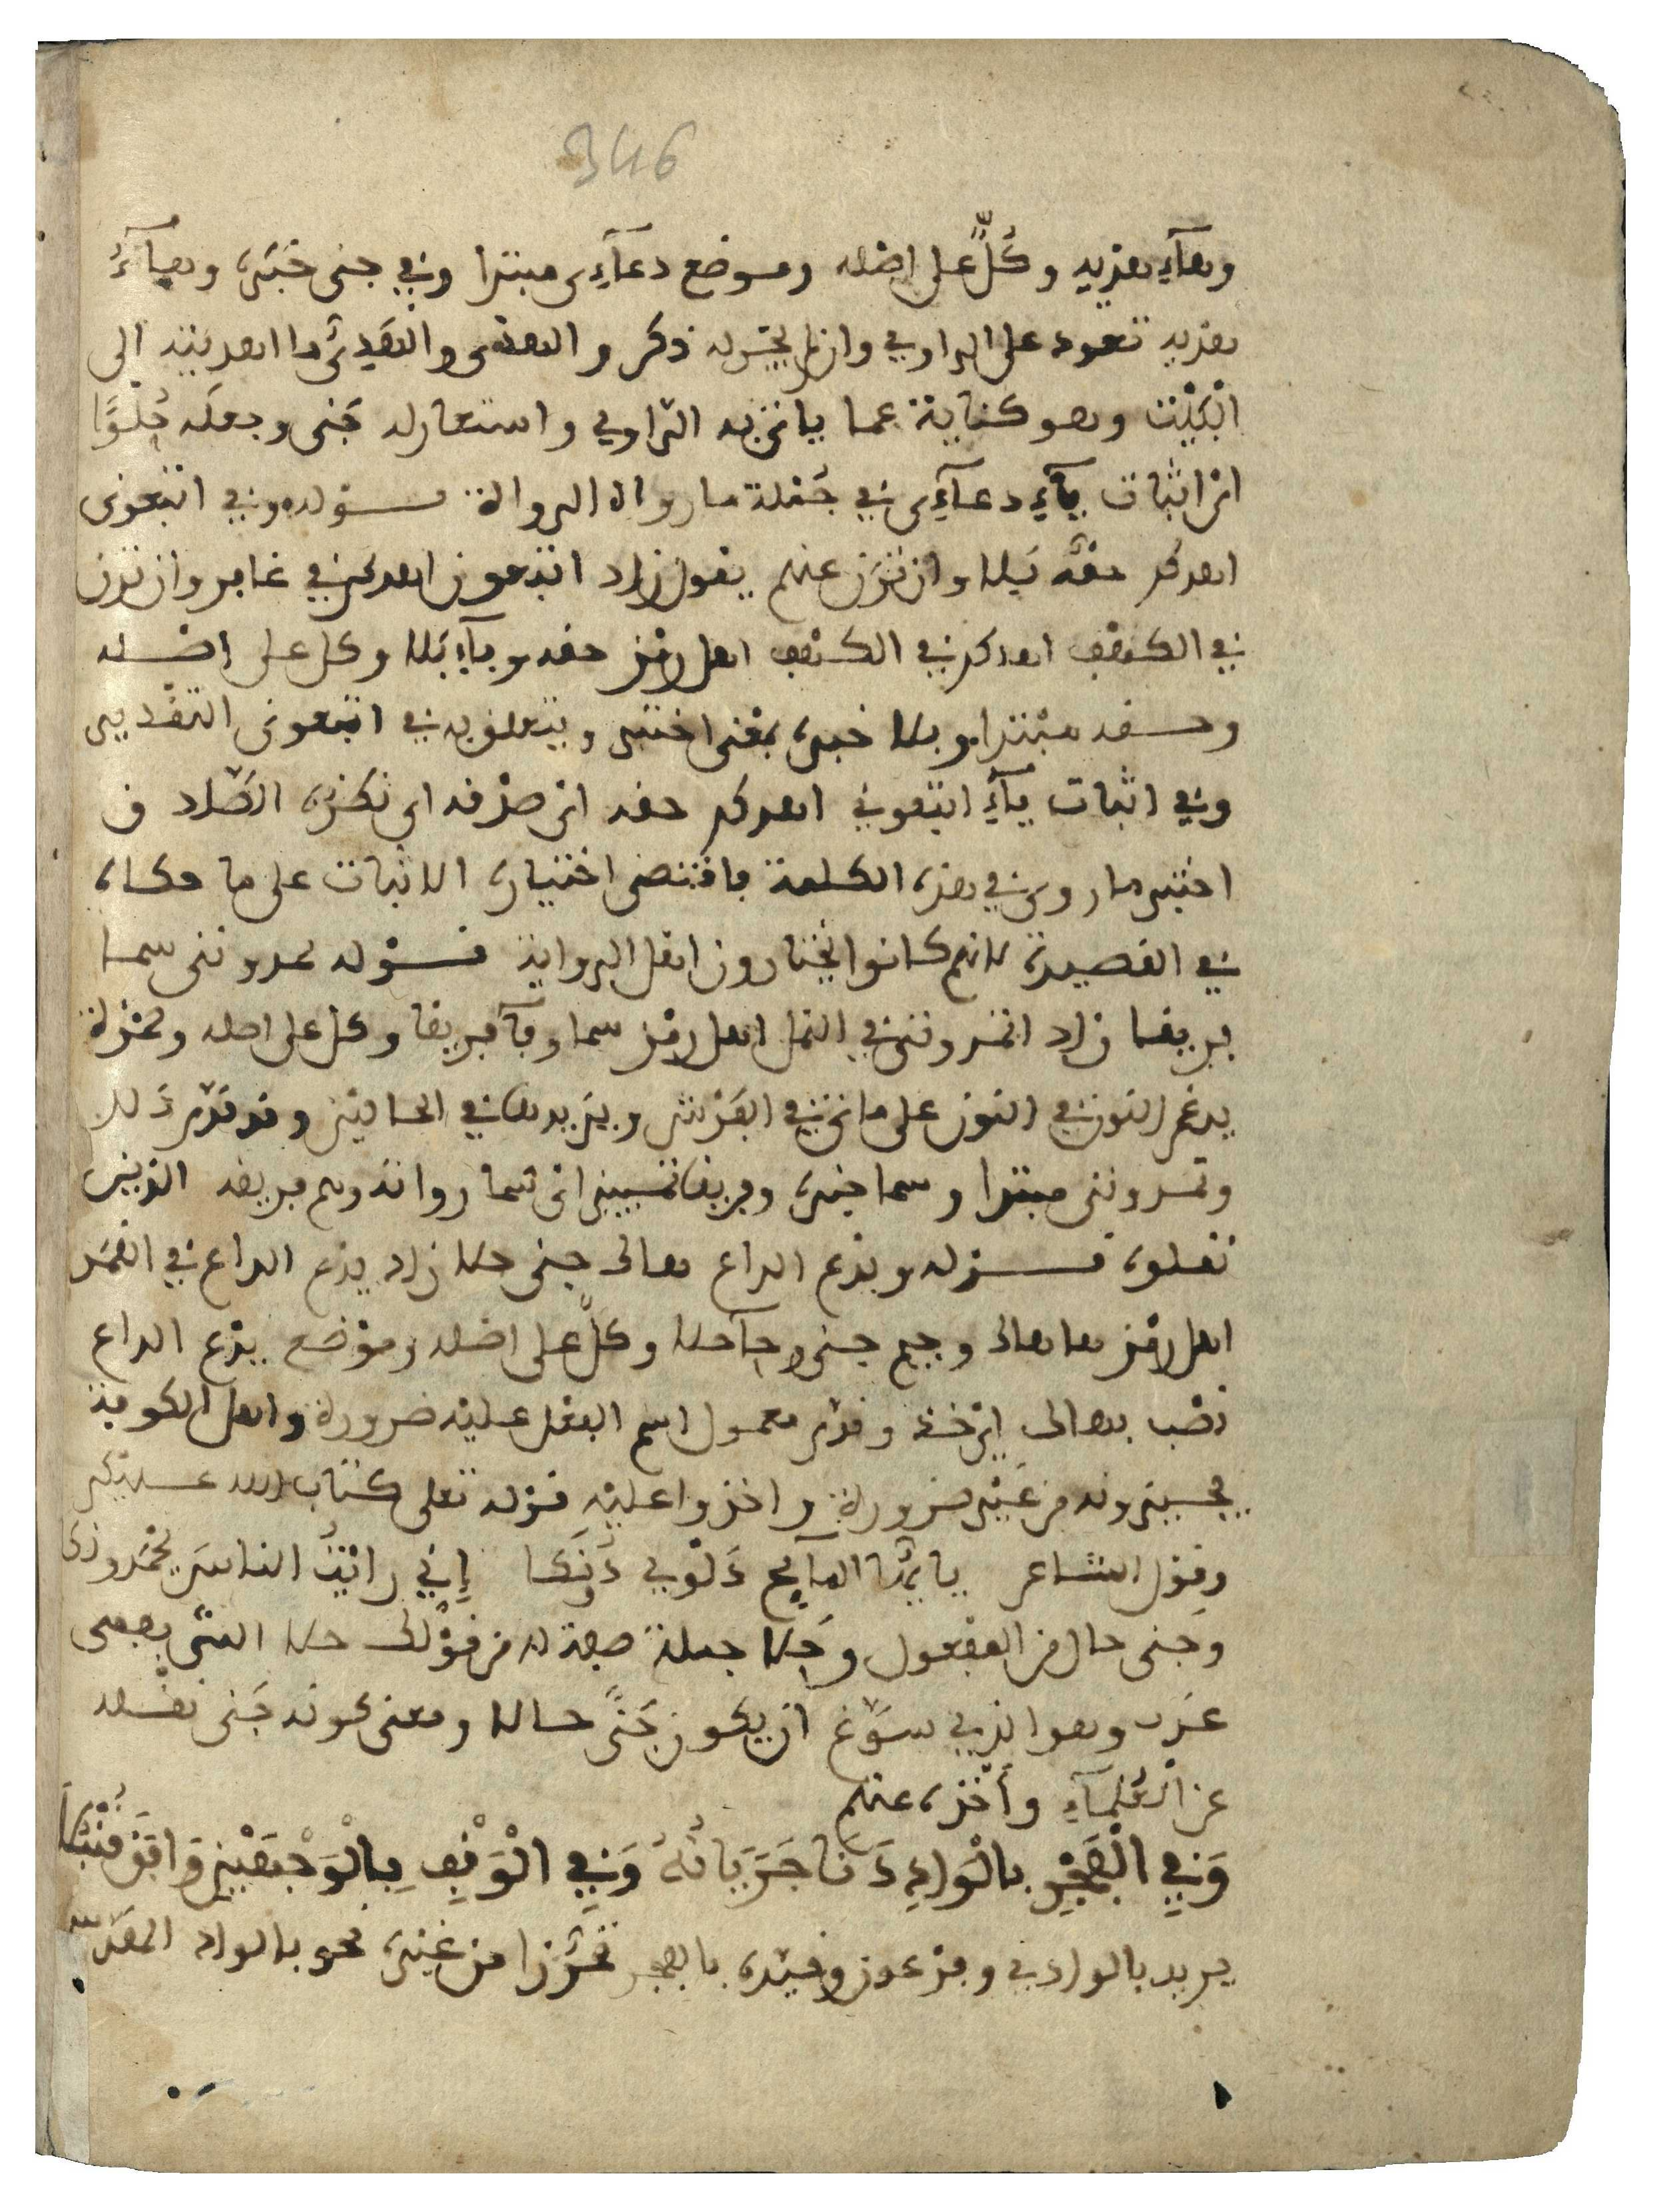 346
وهآء هديه وكلٌّ على اصله وموضع دعآءى مبتدا وفي جنى خبره وهآءُ
هديه تعود على الراوي وان لم يجر له ذكر والهدى والهدي ما اهديته الى
البيت وهو كناية عما ياتي به الراوي واستعار له جنى وجعله حُلْوًا
اى اثبات يآء دعآءى في جملة ما رواه الرواة قوله وفي اتبعونى
اهدكم حقّه بلا وان ترن عنهم يقول زاد اتبعون اهدكم في غافر وان ترن
في الكهف اهدكم في الكهف اهل رمز حقه وبآء بلا وكل على اصله
وحقه مبتدا وبلا خبره بمعنى اختبر ويتعلق به في اتبعونى التقدير
وفي اثبات يآءِ اتبعوني اهدكم حقه اى صدقه اى تكزه الصلاد ف
اختبر ما روى في هذه الكلمة فاقتضى اختياره الاثبات على ما حكاه
في القصيدة لانهم كانوا يختارون اهل الرواية قوله تمدوننى سما
فريقا زاد اتمدوننى في النمل اهل رمز سما وفآ فريقا وكل على اصله وحمزة
يدغم النون في النون على ما ياتي في الفرش ويزيدها في الحالين وقد تقدم ذلك
وتمدوننى مبتدا وسما خبره وفريقا تمييز اى سما رواته وهم فريقه الذين
نقلوه قوله ويدع الداع هاك جنى حلا زاد يدع الداع في القمر
اهل رمز ها هاك وجيم جنى وحآ حلا وكلٌّ على اصله وموضع يدع الداع
نصب بهاك اى خذ وقدم معمول اسم الفعل عليه ضرورة واهل الكوفة
يجيزونه من غير ضرورة واخذوا عليه قوله تعلى كتاب الله عليكم
وقول الشاعر يا ايها المآيح دَلْوِي دُونَكا إِنّي رايْتُ الناسَ يحمدونكا
وجنى حال من المفعول وحلا جملة صفة له من قولك حلا الشى بمعنى
عذب وهو الذي سوّغ ان يكون جَنًى حالا ومعنى كونه جَنى نقله
عن العُلمآءِ وأخذه عنهم
وَفِي الْفَجْرِ بالْوَادِي دَنَا جَرَيَانُهُ وَفِي الْوَقْفِ بِالْوَجْهَيْنِ وَافَقَ قُنْبُلَا
يريد بالوادي وفرعون وقيّده بالفجر تحرّزا من غيره نحو بالواد المقدّس